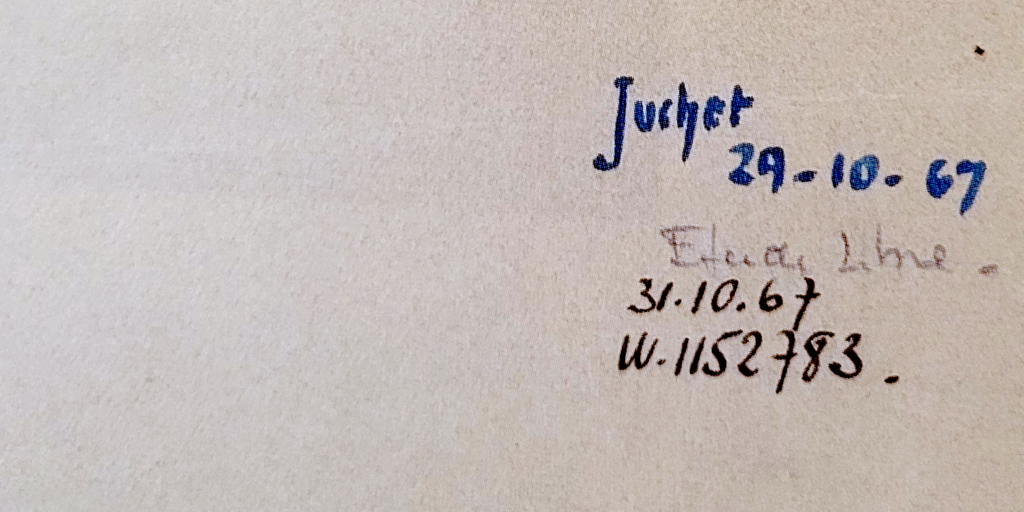 Juchet
29-10-67
31.10.67
W.1152783.